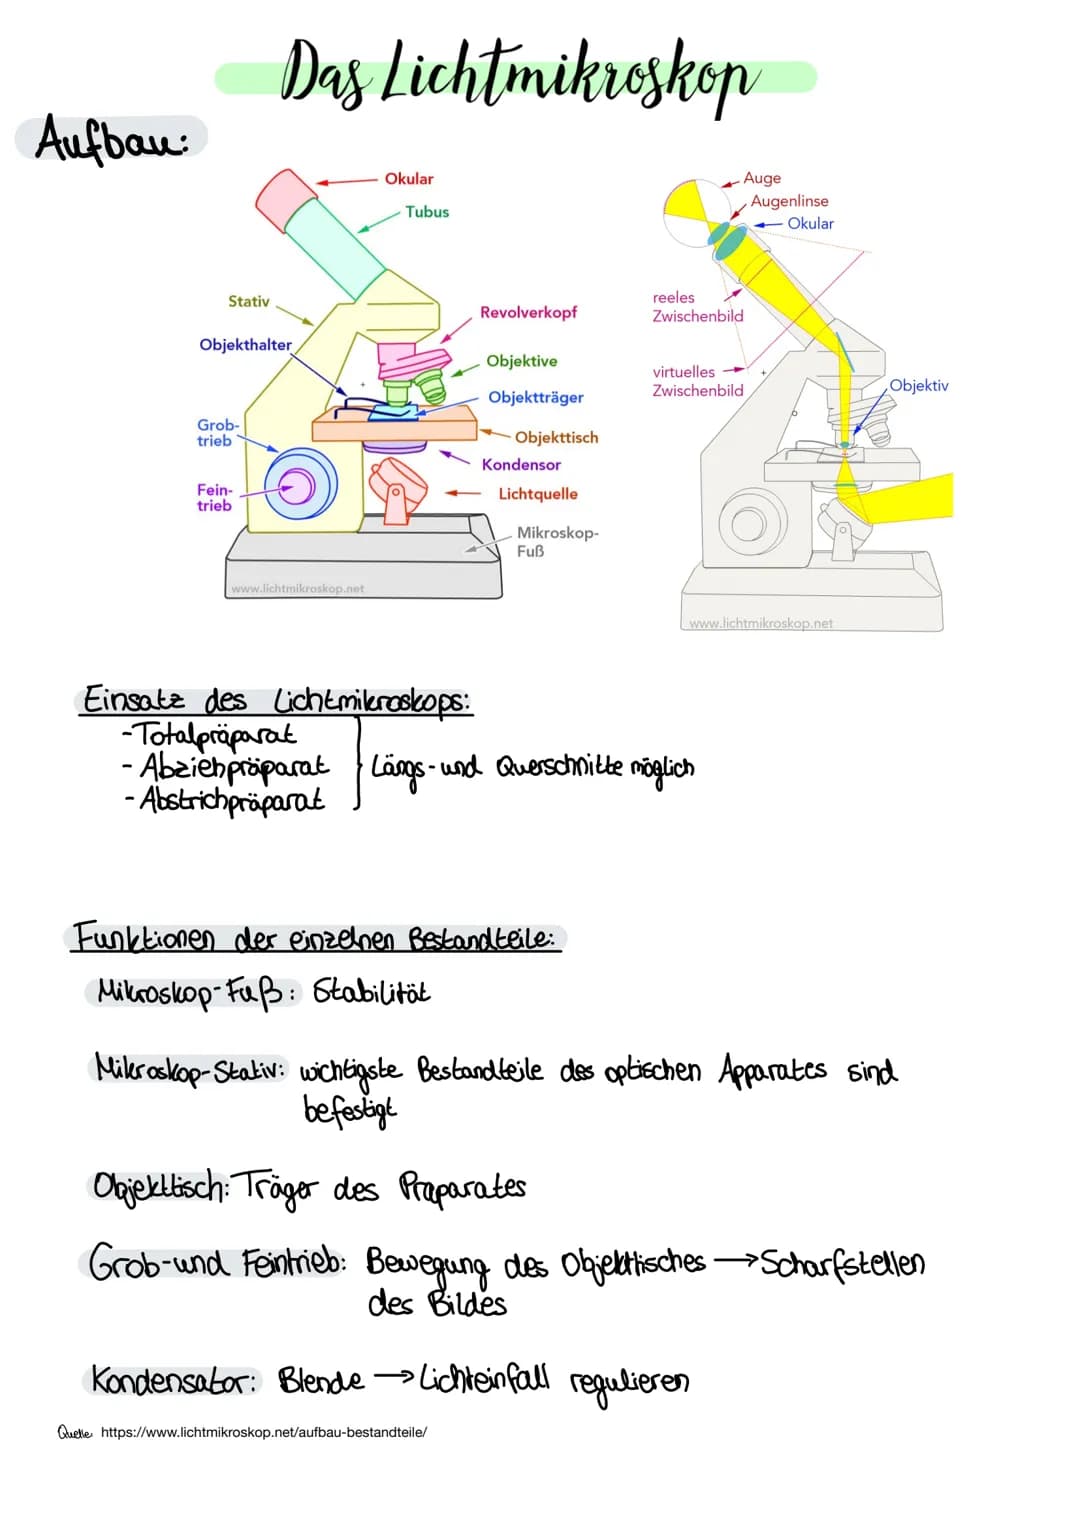 Das Lichtmikroskop
Aufbau:
Okular
Tubus
Stativ
Revolverkopf
Objekthalter
Objektive
Objektträger
Grob-
trieb
Objekttisch
Kondensor
Fein-
trieb
Lichtquelle
Mikroskop-
Fuß
www.lichtmikroskop.net
Auge
Augenlinse
Okular
reeles
Zwischenbild
virtuelles
Zwischenbild
Objektiv
www.lichtmikroskop.net
Einsatz des Lichtmikroskops:
-Totalpräparat
- Abziehpräparat
- Abstrichpräparat
Längs-und Querschnitte möglich
Funktionen der einzelnen Bestandteile:
Mikroskop-Fuß: Stabilität
Mikroskop-Stativ: wichtigste Bestandteile des optischen Apparates sind
befestigt
Objekttisch: Träger des Präparates
Grob-und Feintrieb: Bewegung des Objekttisches → Scharfstellen
des Bildes
Kondensator: Blende → Lichteinfall regulieren
Quelle: https://www.lichtmikroskop.net/aufbau-bestandteile/